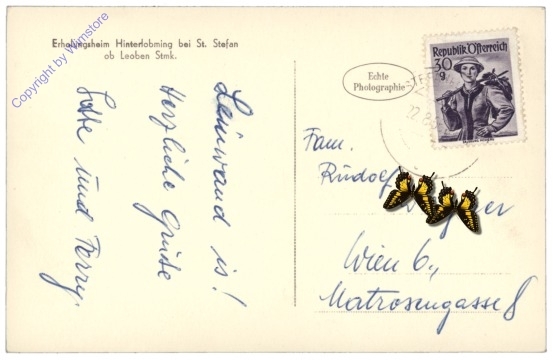 Erholungsheim Hinterlobming bei St. Stefan
ob Leoben Stmk.
Copyright by Wimstore
Leinwand is!
Herzliche Grüße
und Ferry.
Echte
Photographie
Republik Österreich
30
g
22.8
Fam.
Rudolf
Wien 6.,
Matrosengasse 8